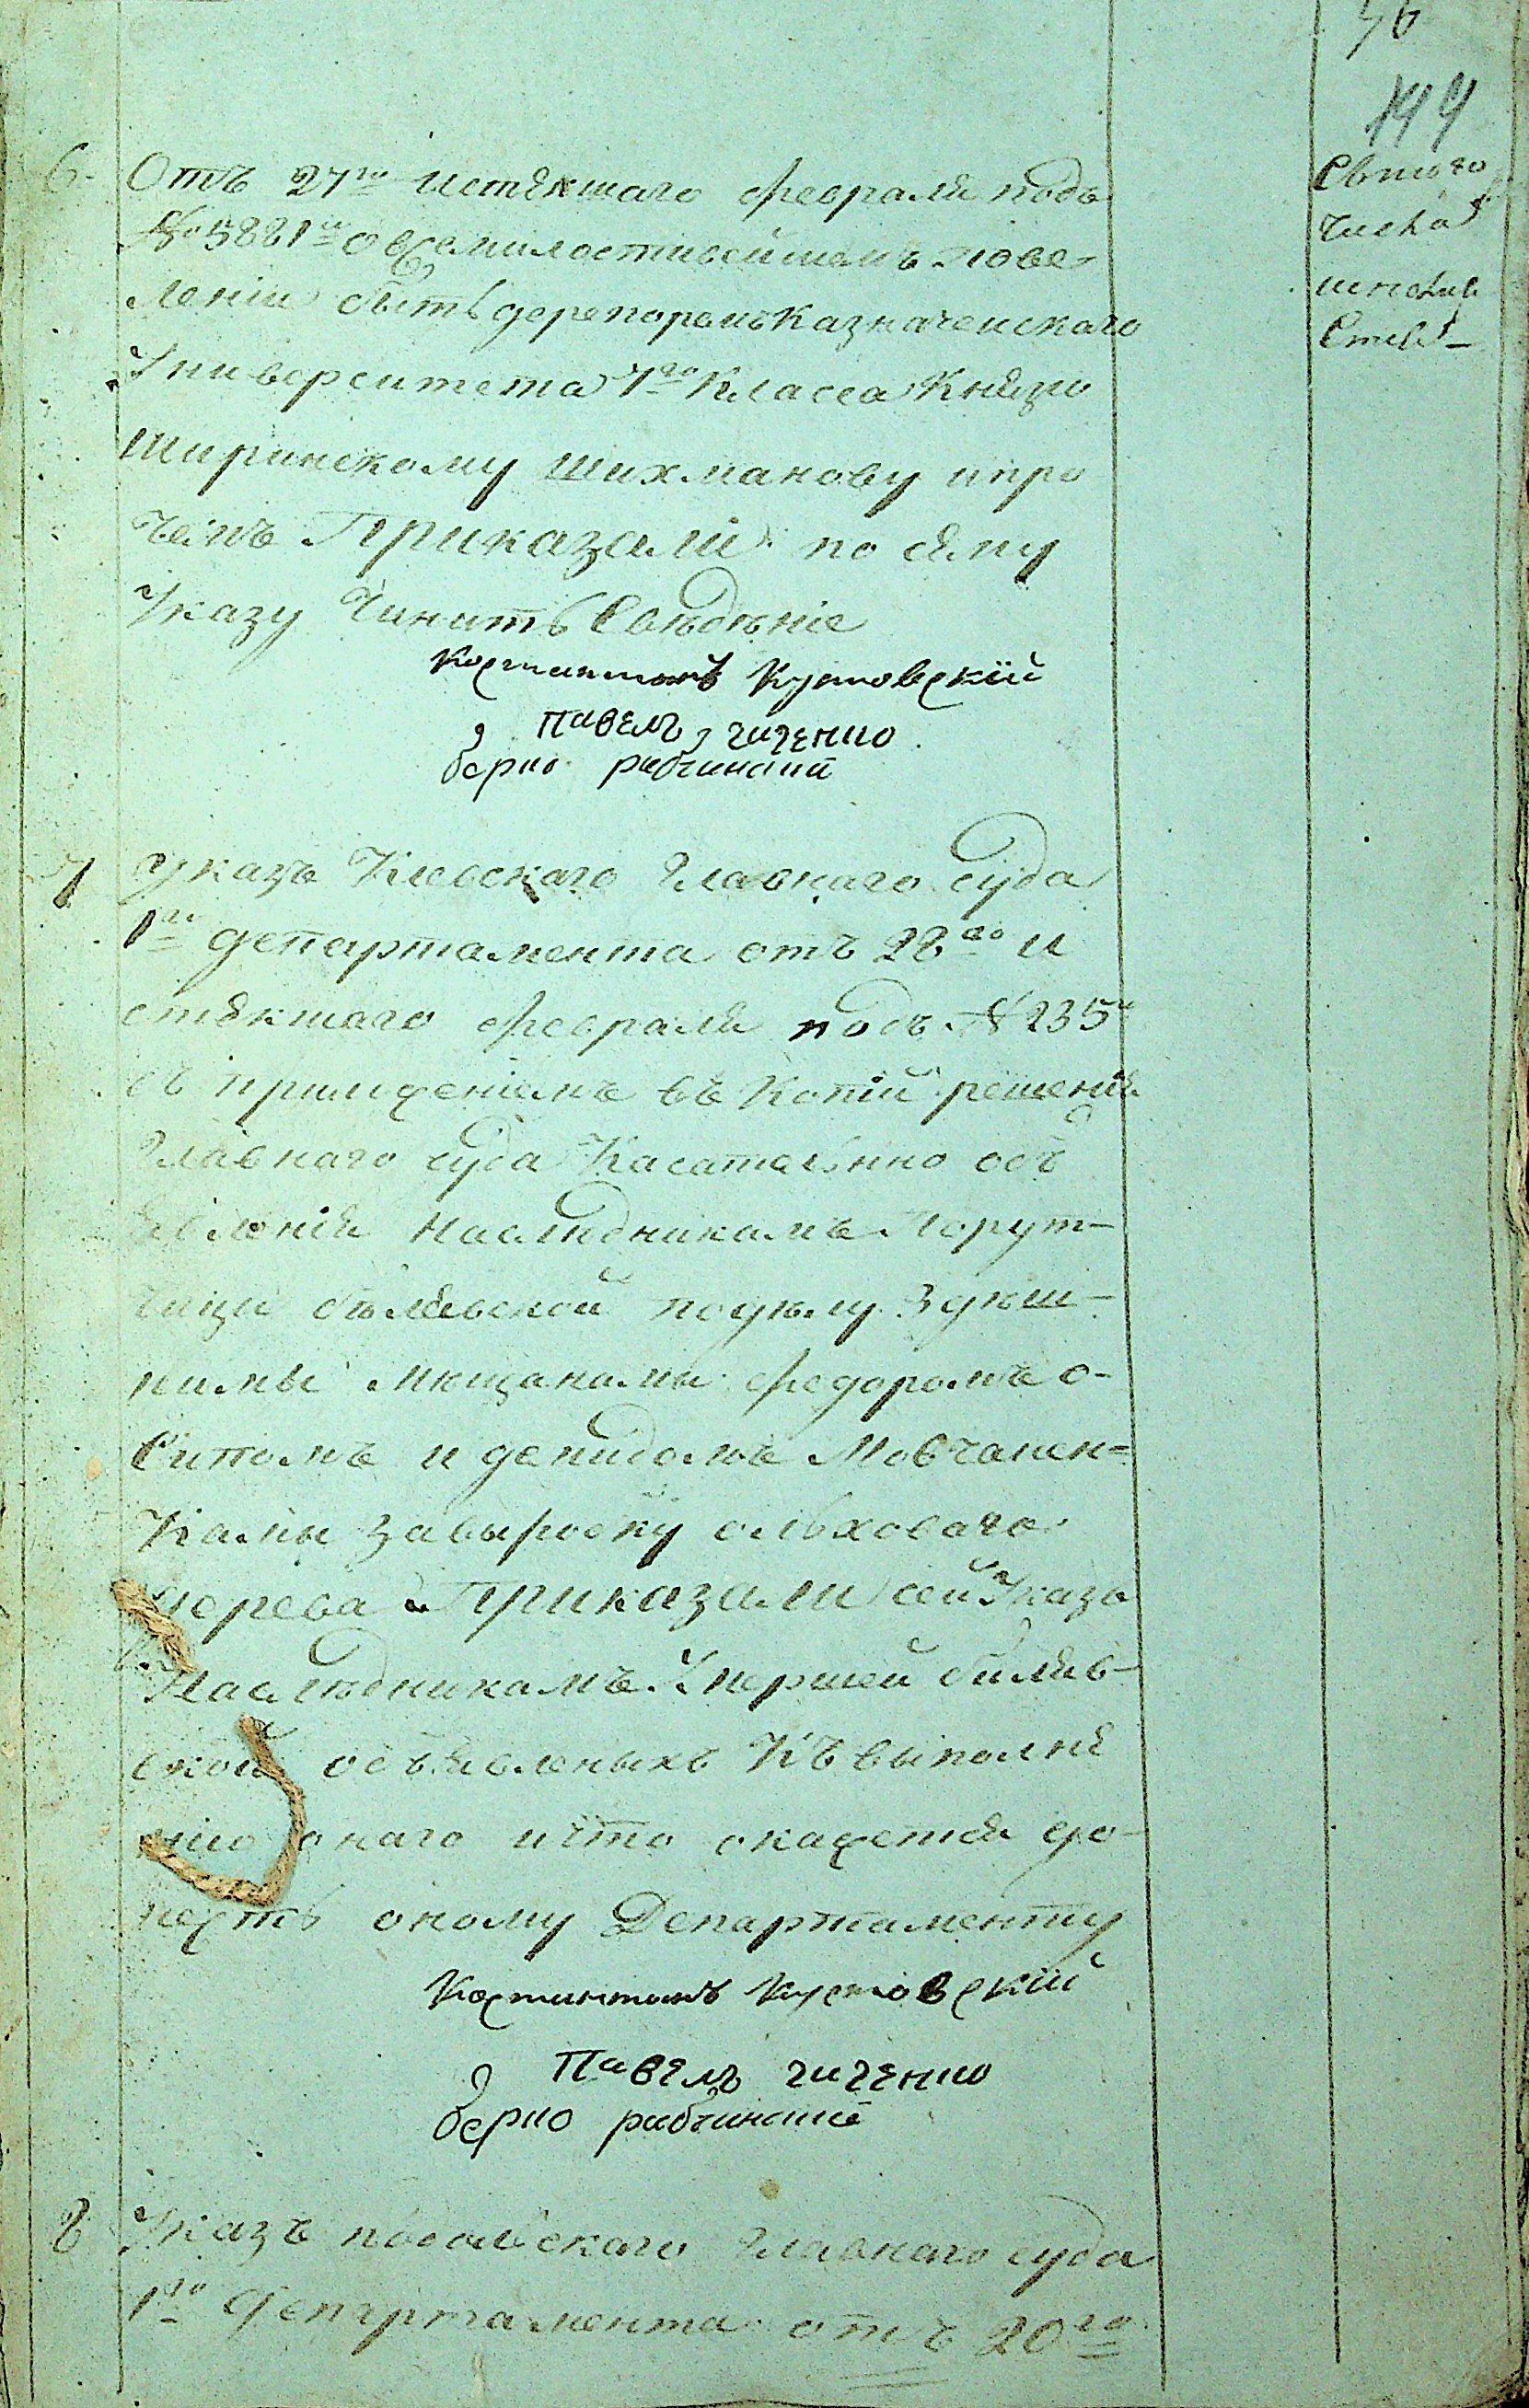 144
6. Отъ 27го истекшаго февраля подъ
№ 5881м о всемилостивейшемъ пове
леніи быть директоромъ Казначейскаго
Университета 7го Класса Князю
Ширинскому Шихматову и про
чемъ Приказали по сему
Указу Чинить Сведеніе
Костантинъ Кутовскій
Павелъ
7 Указъ Киевскаго Главнаго Суда
1го департамента отъ 28го и
стекшаго февраля подъ № 235м
съ приложеніемъ въ Копіи решенія
Главнаго суда Касательно объ
явленія наследникамъ Порут-
чици белявской по делу
мещанами федоромъ о-
сипомъ и демидомъ Мовчанен=
Ками за вырубку ольховаго
дерева Приказали сей Указъ
Наследникамъ Умершей биляв-
ской объявленыхъ Къ выполне
нію онаго и что окажется до-
несть оному Департаменту
Костантинъ Кутовскій
Павелъ
8 Указъ подолскаго Главнаго суда
1го Департамента отъ 20го